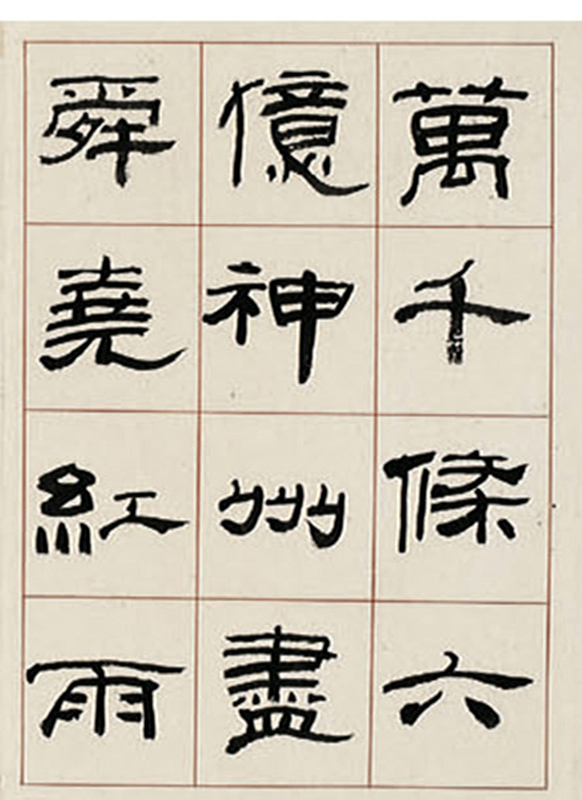 萬千條六
億神州盡
舜堯紅雨